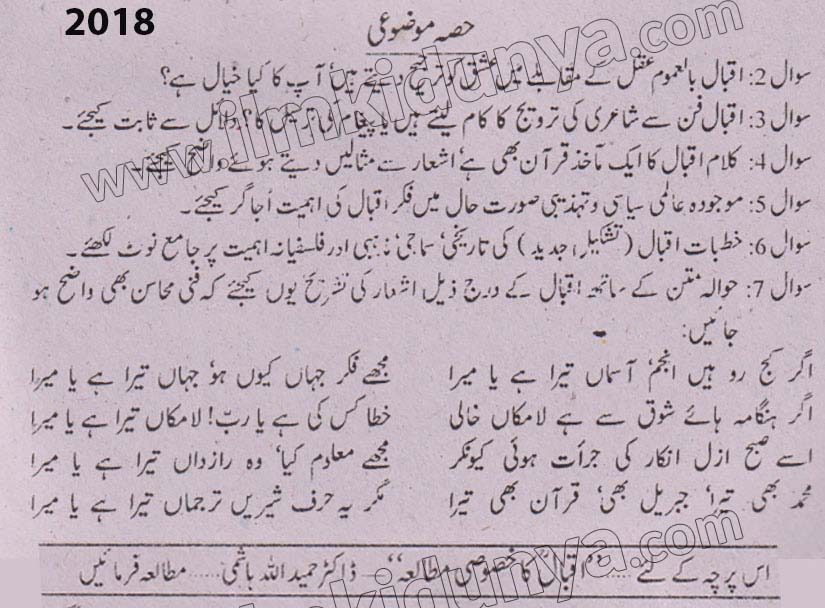 2018
حصہ موضوعی
سوال 2: اقبال بالعموم عقل کے مقابلے میں عشق کو ترجیح دیتے ہیں، آپ کا کیا خیال ہے؟
سوال 3: اقبال فن سے شاعری کی ترویج کا کام لیتے ہیں یا پیغام کی ترسیل کا؟ دلائل سے ثابت کیجئے۔
سوال 4: کلام اقبال کا ایک مآخذ قرآن بھی ہے، اشعار سے مثالیں دیتے ہوئے واضح کیجئے۔
سوال 5: موجودہ عالمی سیاسی و تہذیبی صورت حال میں فکر اقبال کی اہمیت اُجاگر کیجئے۔
سوال 6: خطبات اقبال (تشکیل جدید) کی تاریخی، سماجی، مذہبی اور فلسفیانہ اہمیت پر جامع نوٹ لکھئے۔
سوال 7: حوالہ متن کے ساتھ اقبال کے درج ذیل اشعار کی تشریح یوں کیجئے کہ فنی محاسن بھی واضح ہو
جائیں:
اگر کج رو ہیں انجم، آسماں تیرا ہے یا میرا مجھے فکر جہاں کیوں ہو، جہاں تیرا ہے یا میرا
اگر ہنگامہ ہائے شوق سے ہے لامکاں خالی خطا کس کی ہے یا ربّ! لامکاں تیرا ہے یا میرا
اسے صبح ازل انکار کی جرأت ہوئی کیونکر مجھے معلوم کیا، وہ رازداں تیرا ہے یا میرا
محمد بھی تیرا، جبریل بھی، قرآن بھی تیرا مگر یہ حرف شیریں ترجماں تیرا ہے یا میرا
اس پرچہ کے لئے ..... "اقبال کا خصوصی مطالعہ" — ڈاکٹر حمید اللہ ہاشمی ..... مطالعہ فرمائیں
www.ilmkidunya.com
ilmkidunya.com